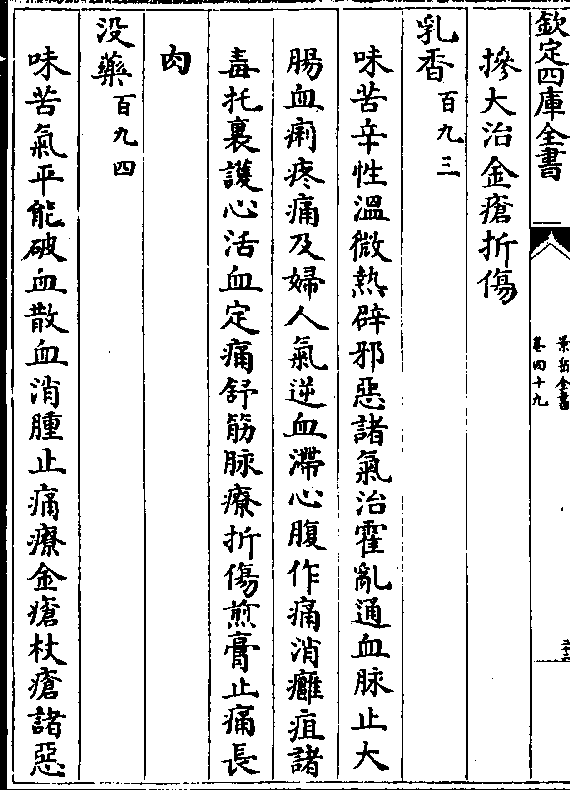 欽定四庫全書
景岳全書
卷四十九
摻大治金瘡折傷
乳香百九三
味苦辛性溫微熱辟邪惡諸氣治霍亂通血脉止大
腸血痢疼痛及婦人氣逆血滯心腹作痛消癰疽諸
毒托裏護心活血定痛舒筋脉療折傷煎膏止痛長
肉
没藥百九四
味苦氣平能破血散血消腫止痛療金瘡杖瘡諸惡